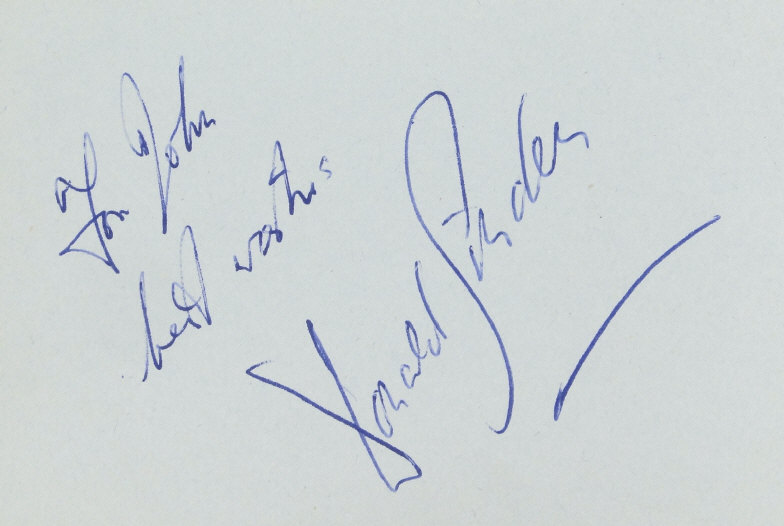 For John
best wishes
Donald Sinden